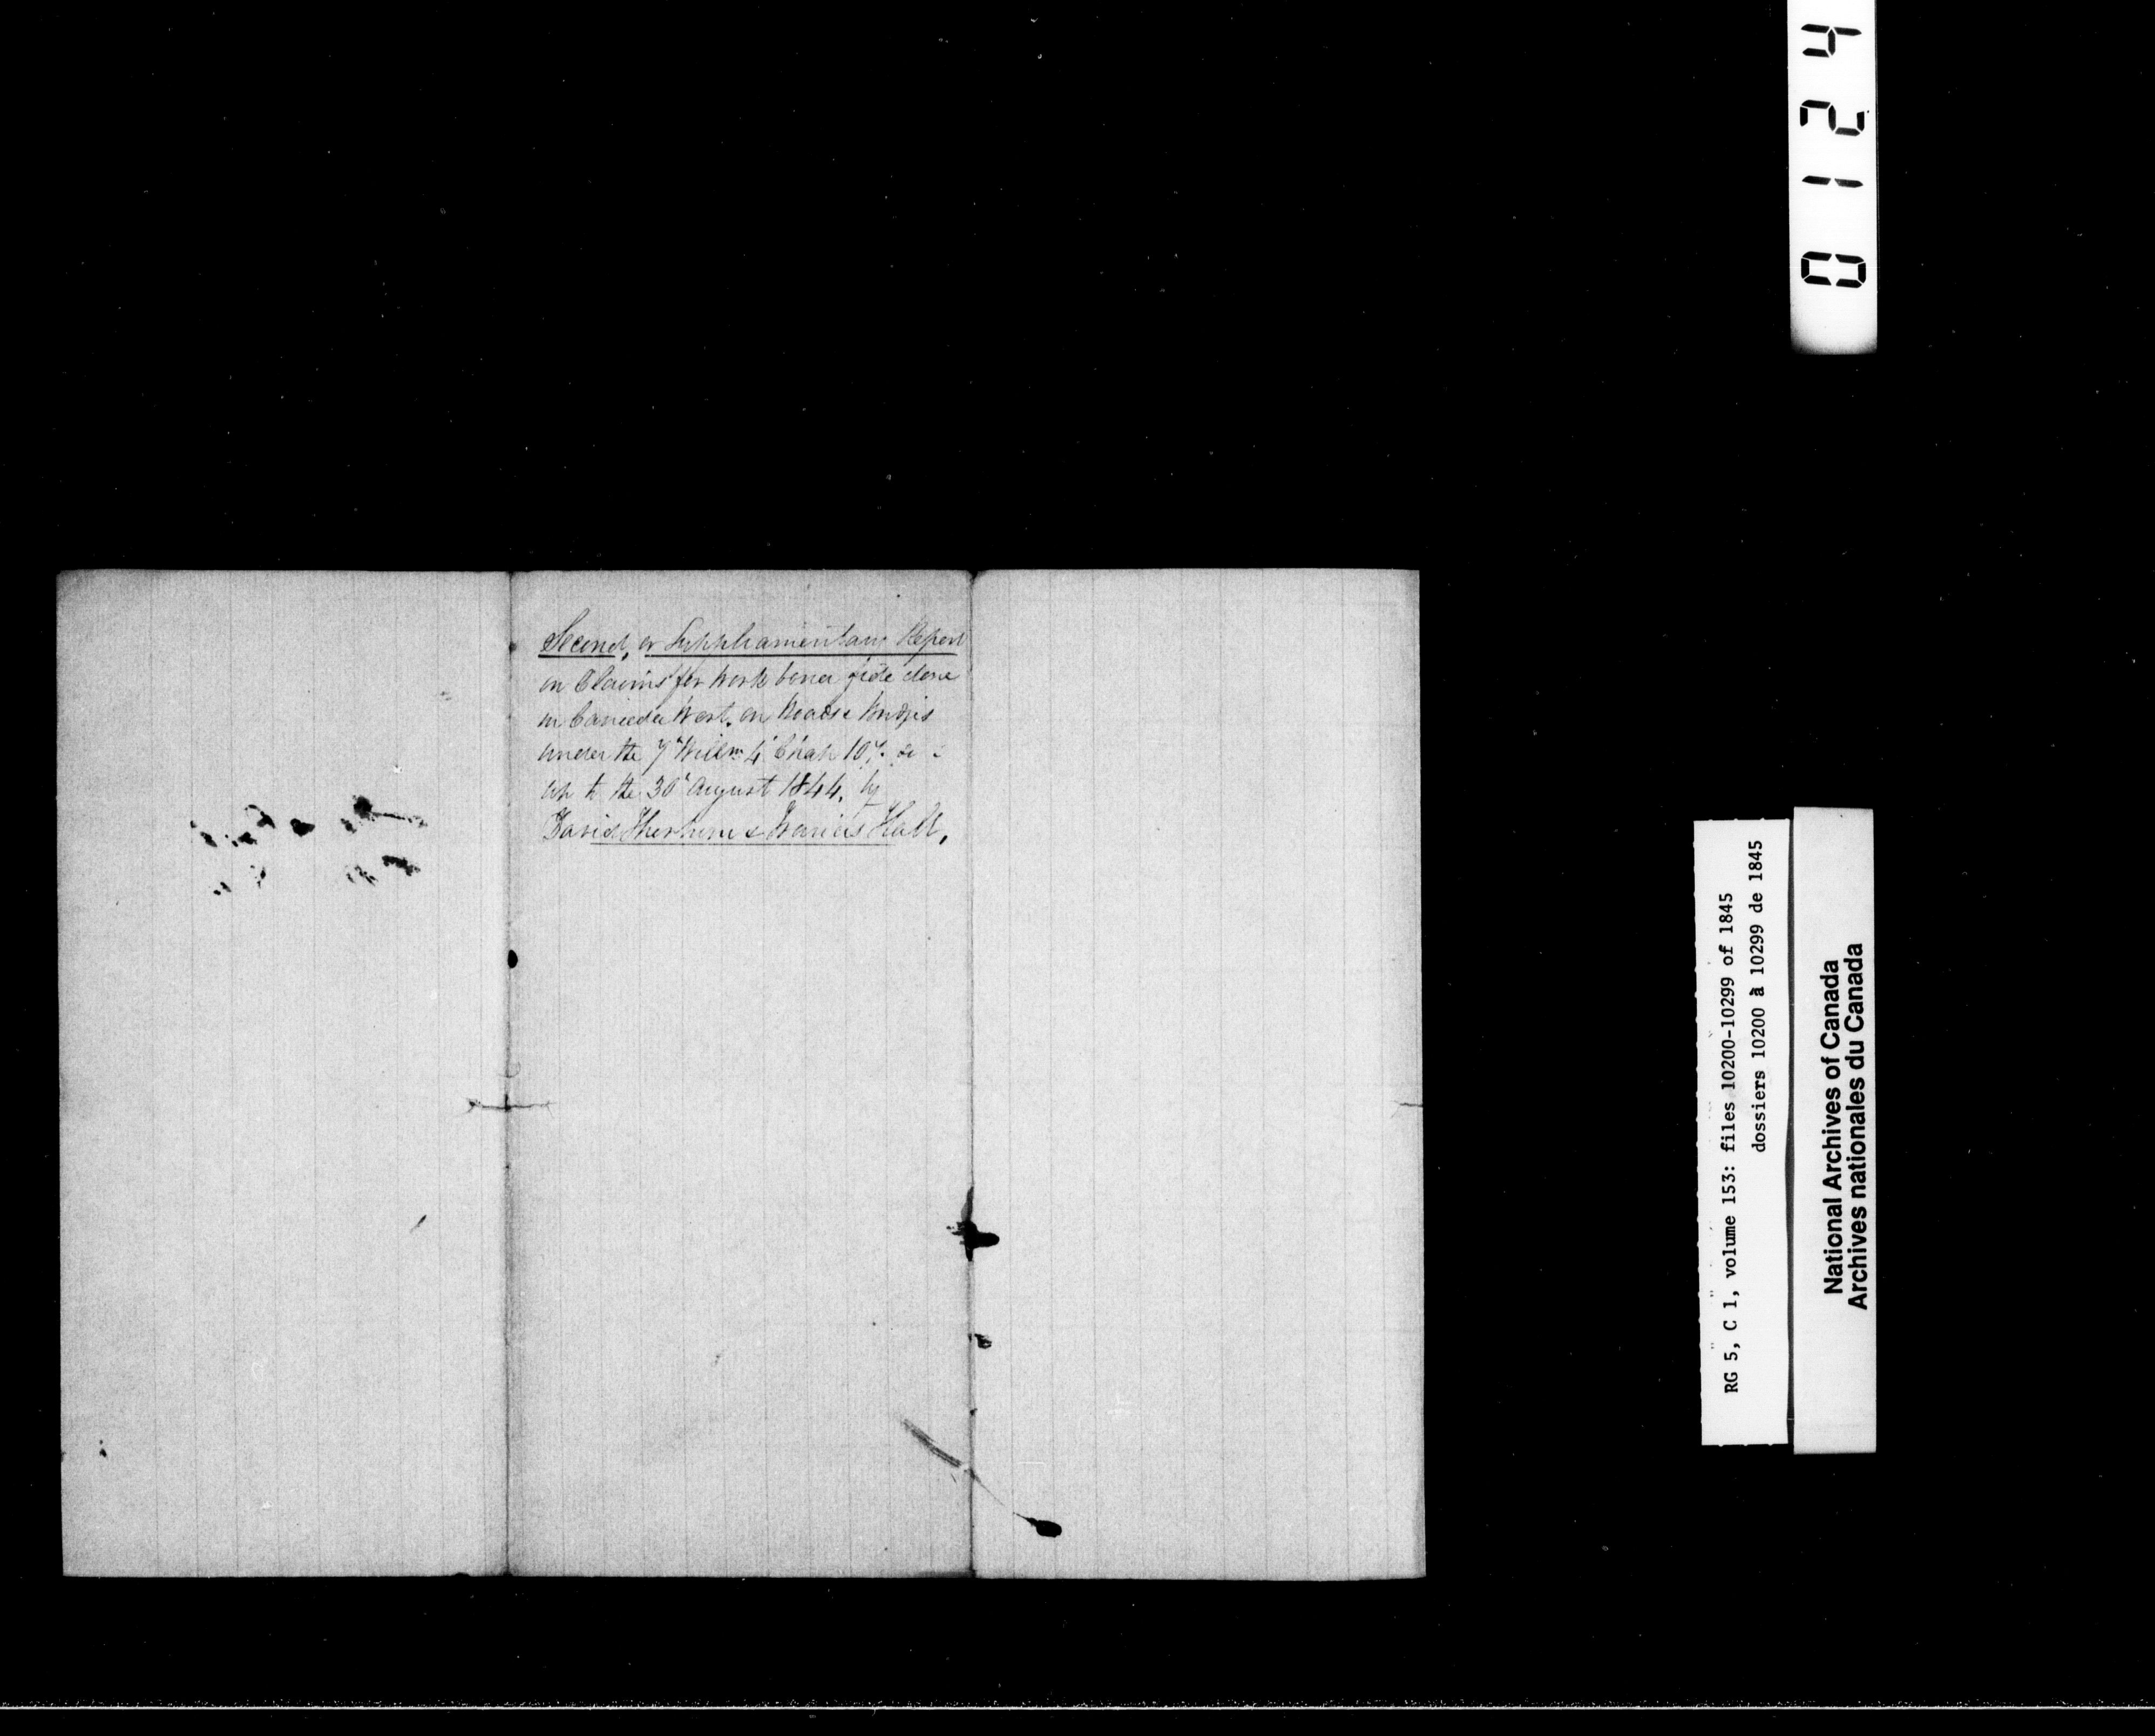 Second, or Suppliamentary Report
on Claims for Work bona fide done
in Canada West, on Roads & Bridges
under the 7th Willm 4th Chap 107. &c
up to the 30th August 1844, by
David Thorburn & Francis Hall,
0124
RG 5, C 1, volume 153: files 10200-10299 of 1845
dossiers 10200 à 10299 de 1845
National Archives of Canada
Archives nationales du Canada